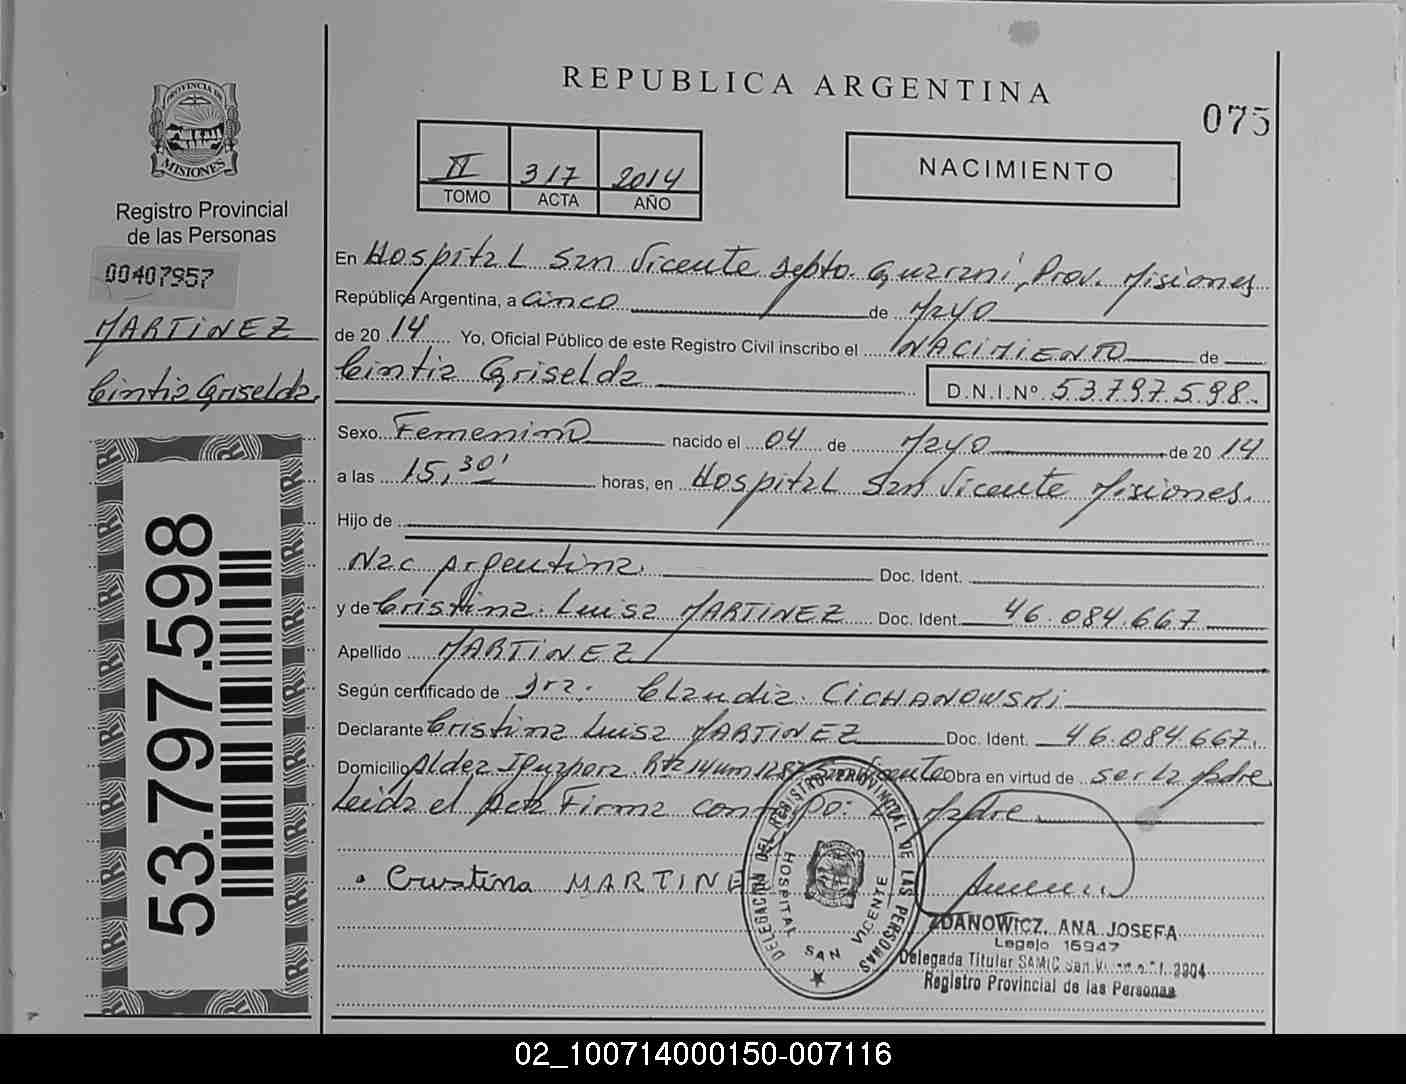 REPUBLICA ARGENTINA
075
PROVINCIA DE
MISIONES
Registro Provincial
de las Personas
00407957
MARTINEZ
Cintia Griselda.
53.797.598
II 317 2014
TOMO ACTA AÑO
NACIMIENTO
En Hospital San Vicente Depto. Guarani, Prov. Misiones
República Argentina, a cinco de Mayo
de 2014 Yo, Oficial Público de este Registro Civil inscribo el NACIMIENTO de
Cintia Griselda D.N.I.Nº 53.797.598.
Sexo Femenino nacido el 04 de Mayo de 2014
a las 15,30' horas, en Hospital San Vicente Misiones.
Hijo de
Nac Argentina. Doc. Ident.
y de Cristina Luisa MARTINEZ Doc. Ident. 46.084.667
Apellido MARTINEZ
Según certificado de Dra. Claudia CICHANOWSKI
Declarante Cristina Luisa MARTINEZ Doc. Ident. 46.084.667.
Domicilio Aldea Ipuapora Rta 14 Km 1287 Vicente Obra en virtud de ser La Madre
Leida el acta Firma Madre
Cristina MARTINE
DELEGACION DEL REGISTRO PROVINCIAL DE LAS PERSONAS
HOSPITAL SAN VICENTE
ZDANOWICZ, ANA JOSEFA
Legajo 15947
Delegada Titular SAMIC San 2904
Registro Provincial de las Personas
02_100714000150-007116